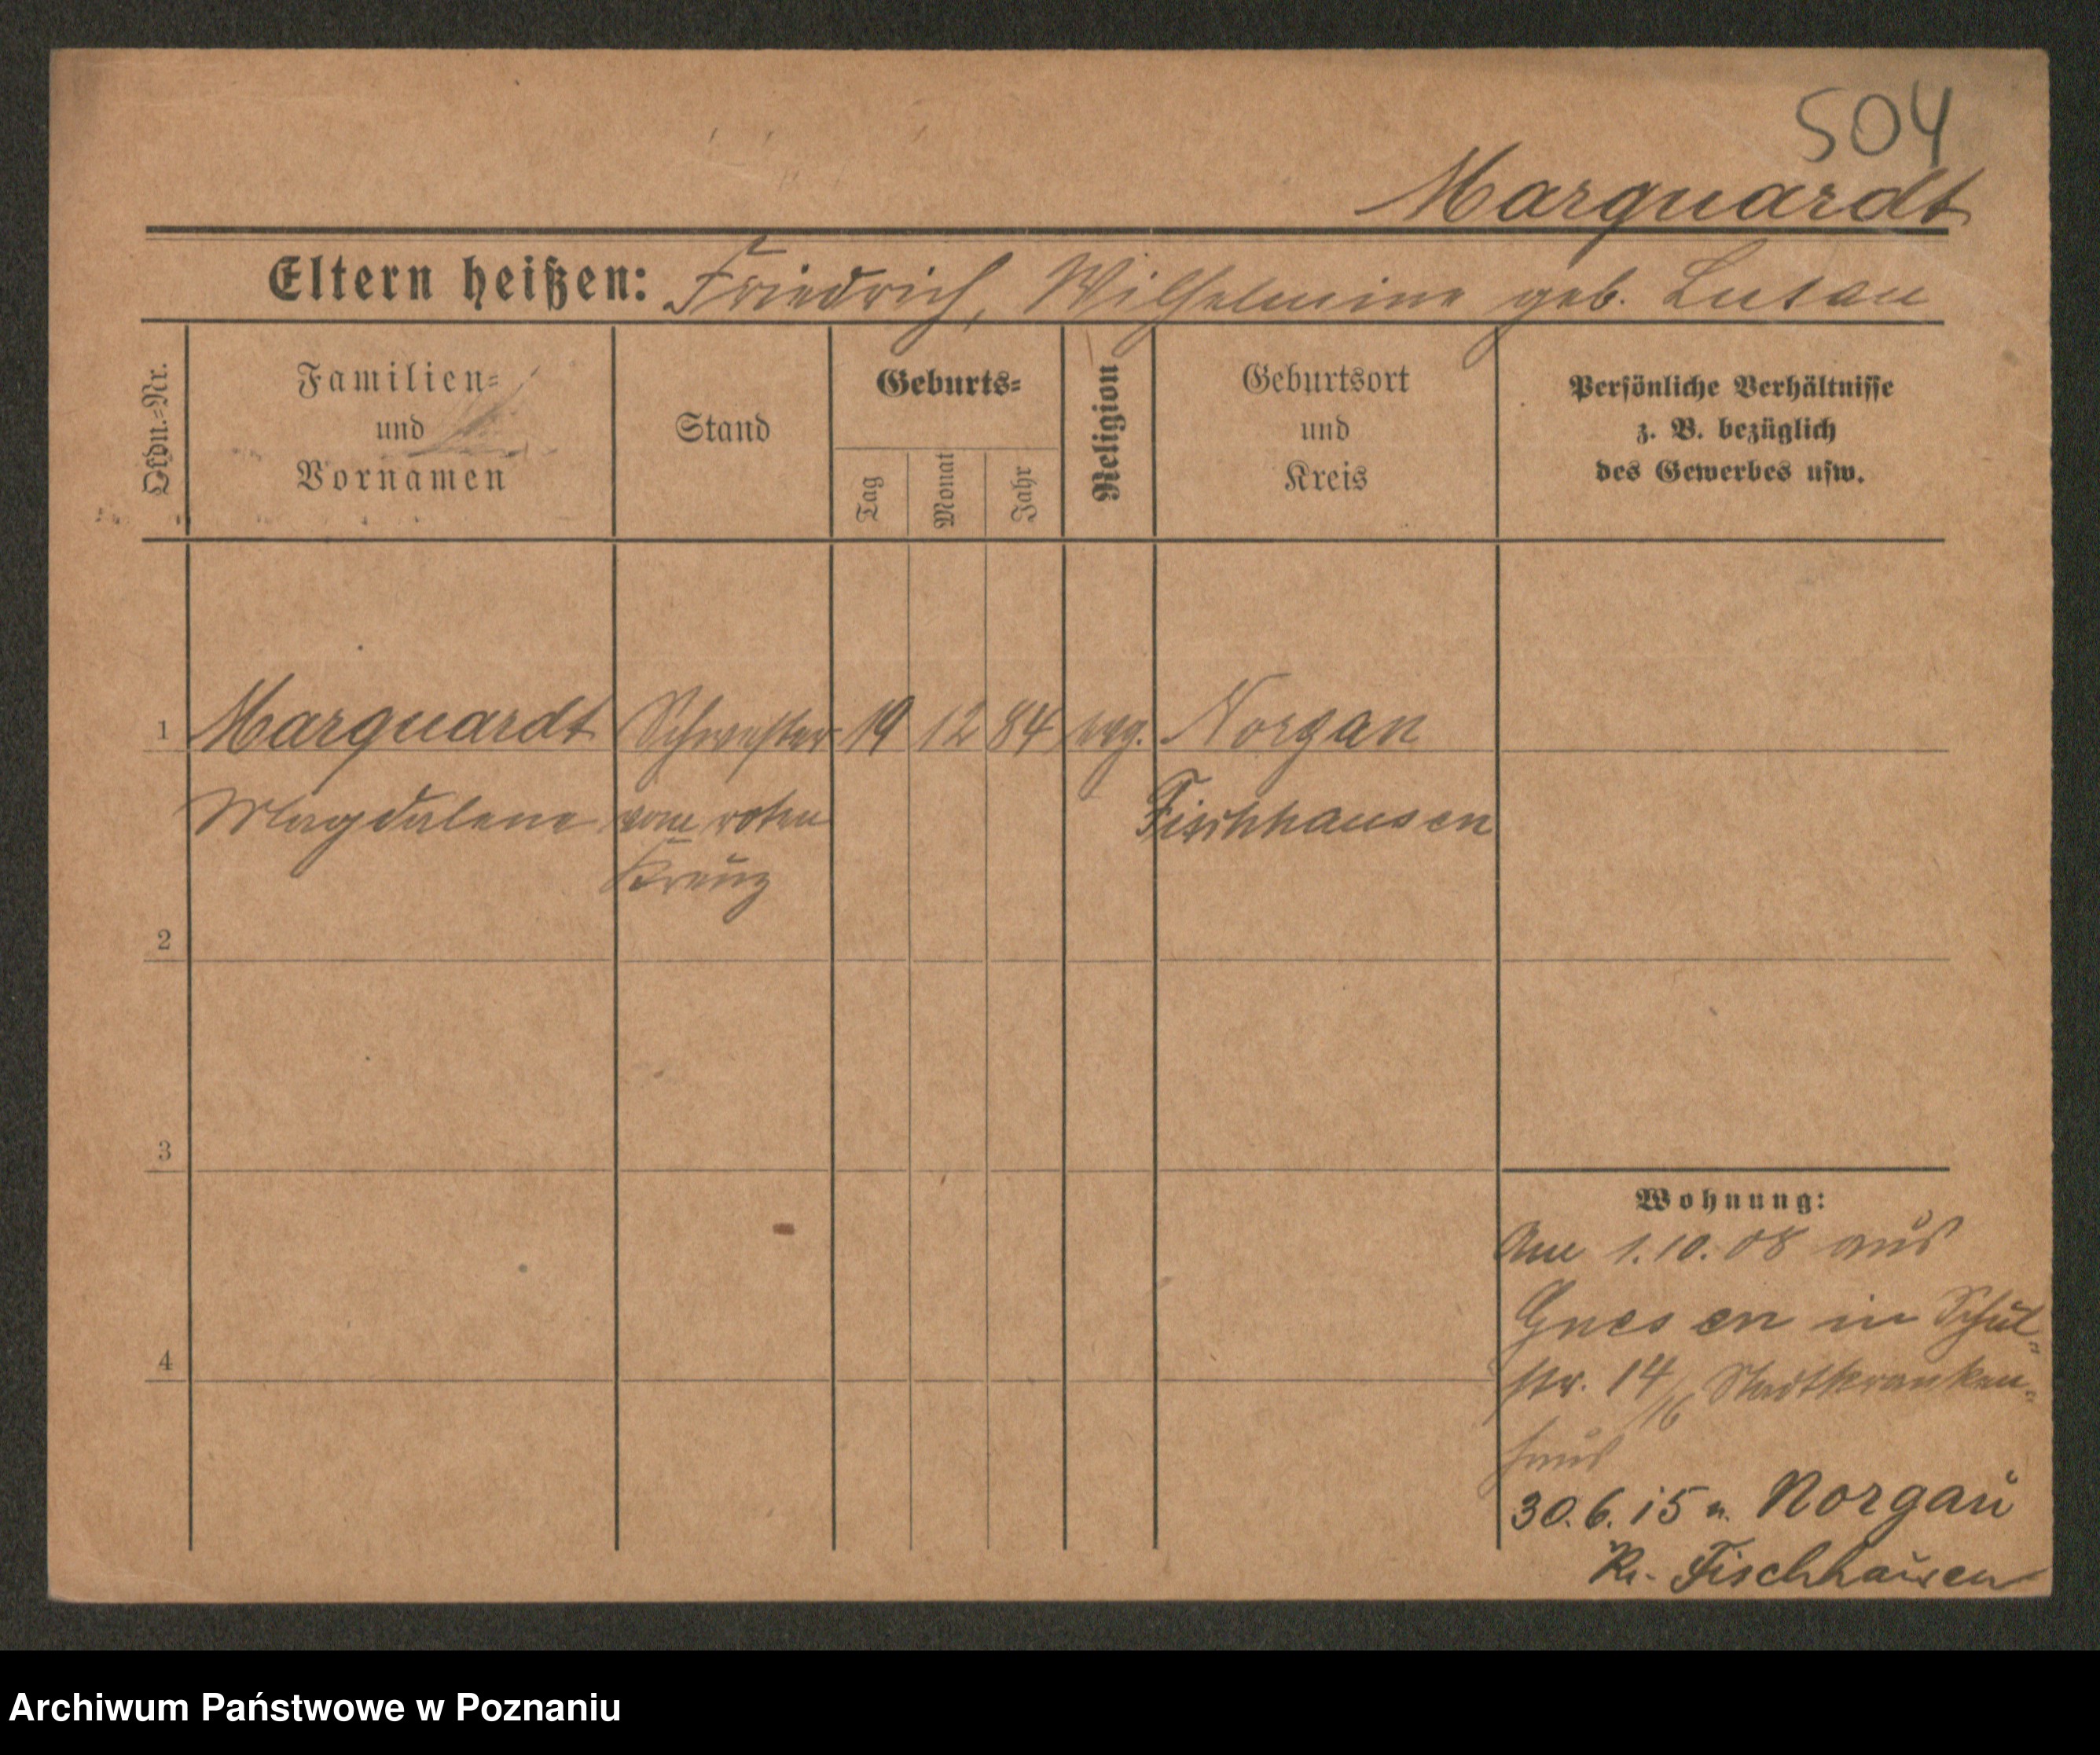 504
Marquardt
Eltern heißen: Friedrich, Wilhelmine geb. Lusau
Lfdn.=Nr.
Familien=
und
Vornamen
Stand
Geburts=
Tag
Monat
Jahr
Religion
Geburtsort
und
Kreis
Persönliche Verhältnisse
z. B. bezüglich
des Gewerbes usw.
1 Marquardt Schwester 19 12 84 evg. Norgau
Magdalene vom roten Fischhausen
Kreuz
2
3
4
Wohnung:
Am 1.10.08 aus
Gnesen in Schul-
str. 14/16 Stadtkranken-
haus
30.6.15 n. Norgau
Kr. Fischhausen
Archiwum Państwowe w Poznaniu